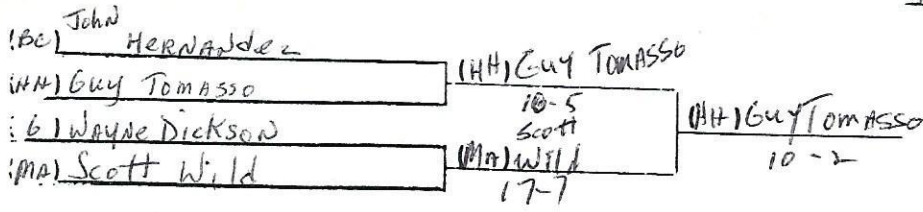 (BC) John HERNANdez
(HH) Guy TOMASSO
(G) WAYNe DICKSON
(MA) Scott Wild
(HH) Guy TOMASSO
10-5
Scott
(MA) Wild
17-7
(HH) Guy TOMASSO
10-2